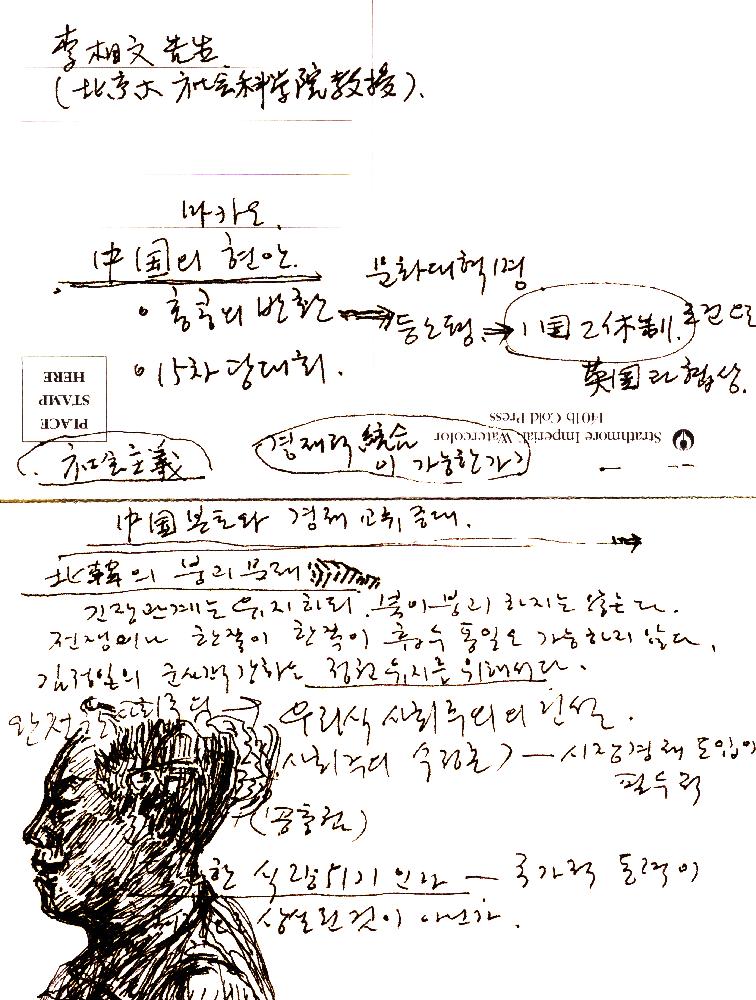 李相文 先生
(北京大 社会科学院 教授).
마카오.
中国의 현안.
문화대혁명
홍콩의 반환
등소평. 1国 2体制. 조건으로
15차 당대회.
英国과 협상.
PLACE
STAMP
HERE
Strathmore Imperial Watercolor
140lb Cold Press
社会主義
경제적 統合
이 가능한가?
中国 본토와 경제 교류 증대.
北韓의 붕괴 문제
긴장관계는 유지하되 북이 붕괴 하지는 않는다.
전쟁이나 한쪽이 한쪽이 흡수 통일도 가능하지 않다.
김정일의 군사력 강화는 정권 유지를 위해서다.
우리식 사회주의의 건설.
시장경제 도입이
필수적
(공출권)
한 식량위기 인가 — 국가적 동력이
상실된 것이 아닌가.